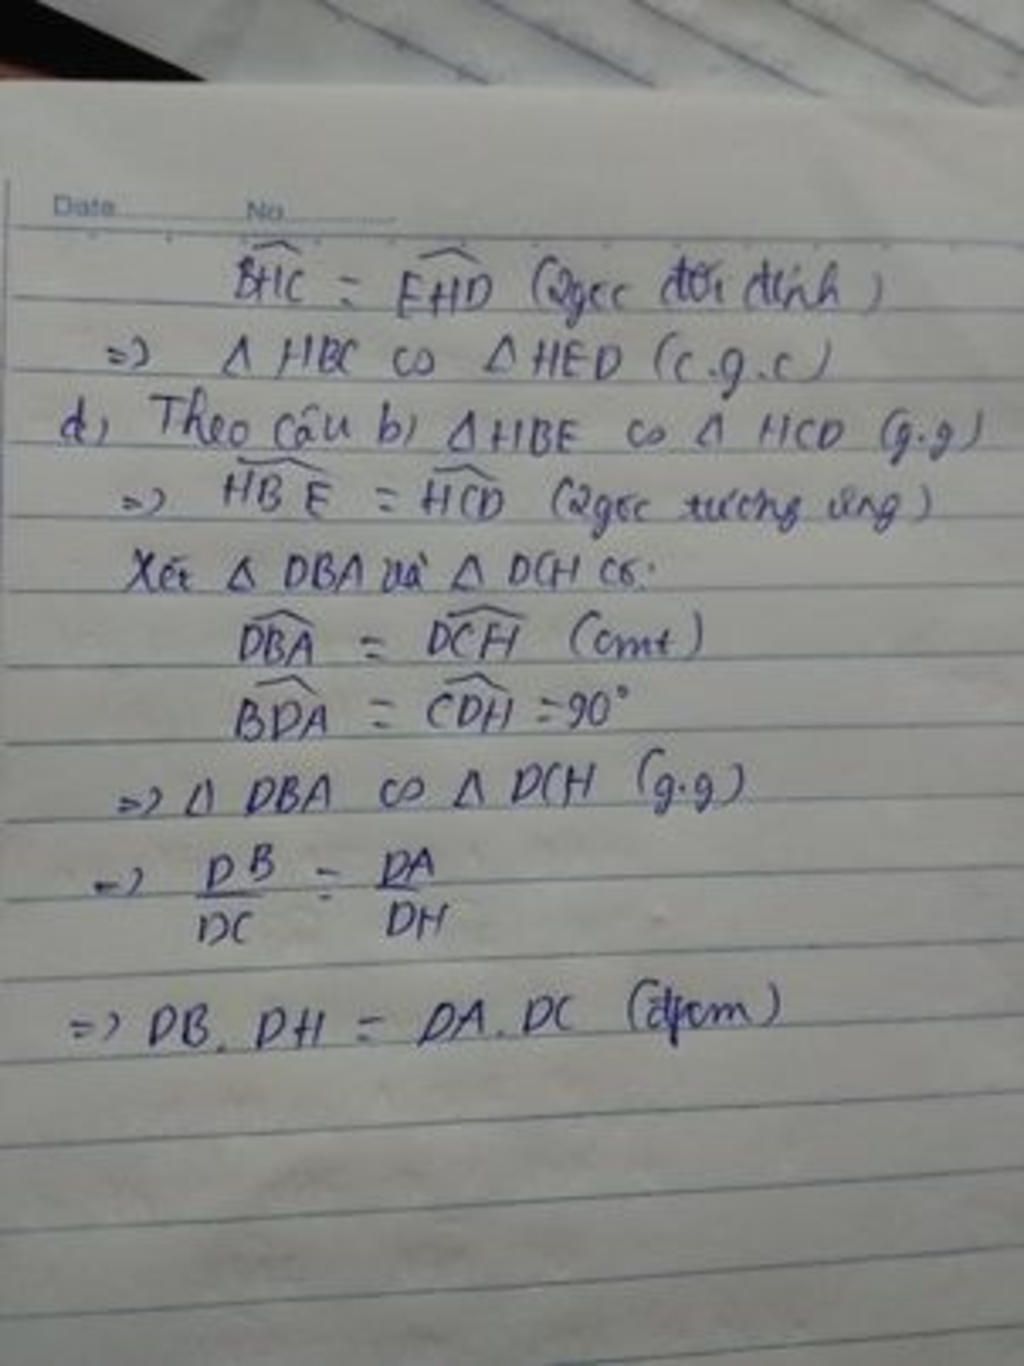 Date No
BHC = EHD (2góc đối đỉnh)
=> Δ HBC ∽ Δ HED (c.g.c)
d, Theo câu b) Δ HBE ∽ Δ HCD (g.g)
=> HBE = HCD (2góc tương ứng)
Xét Δ DBA và Δ DCH có:
DBA = DCH (cmt)
BDA = CDH = 90°
=> Δ DBA ∽ Δ DCH (g.g)
=> DB/DC = DA/DH
=> DB. DH = DA. DC (đpcm)